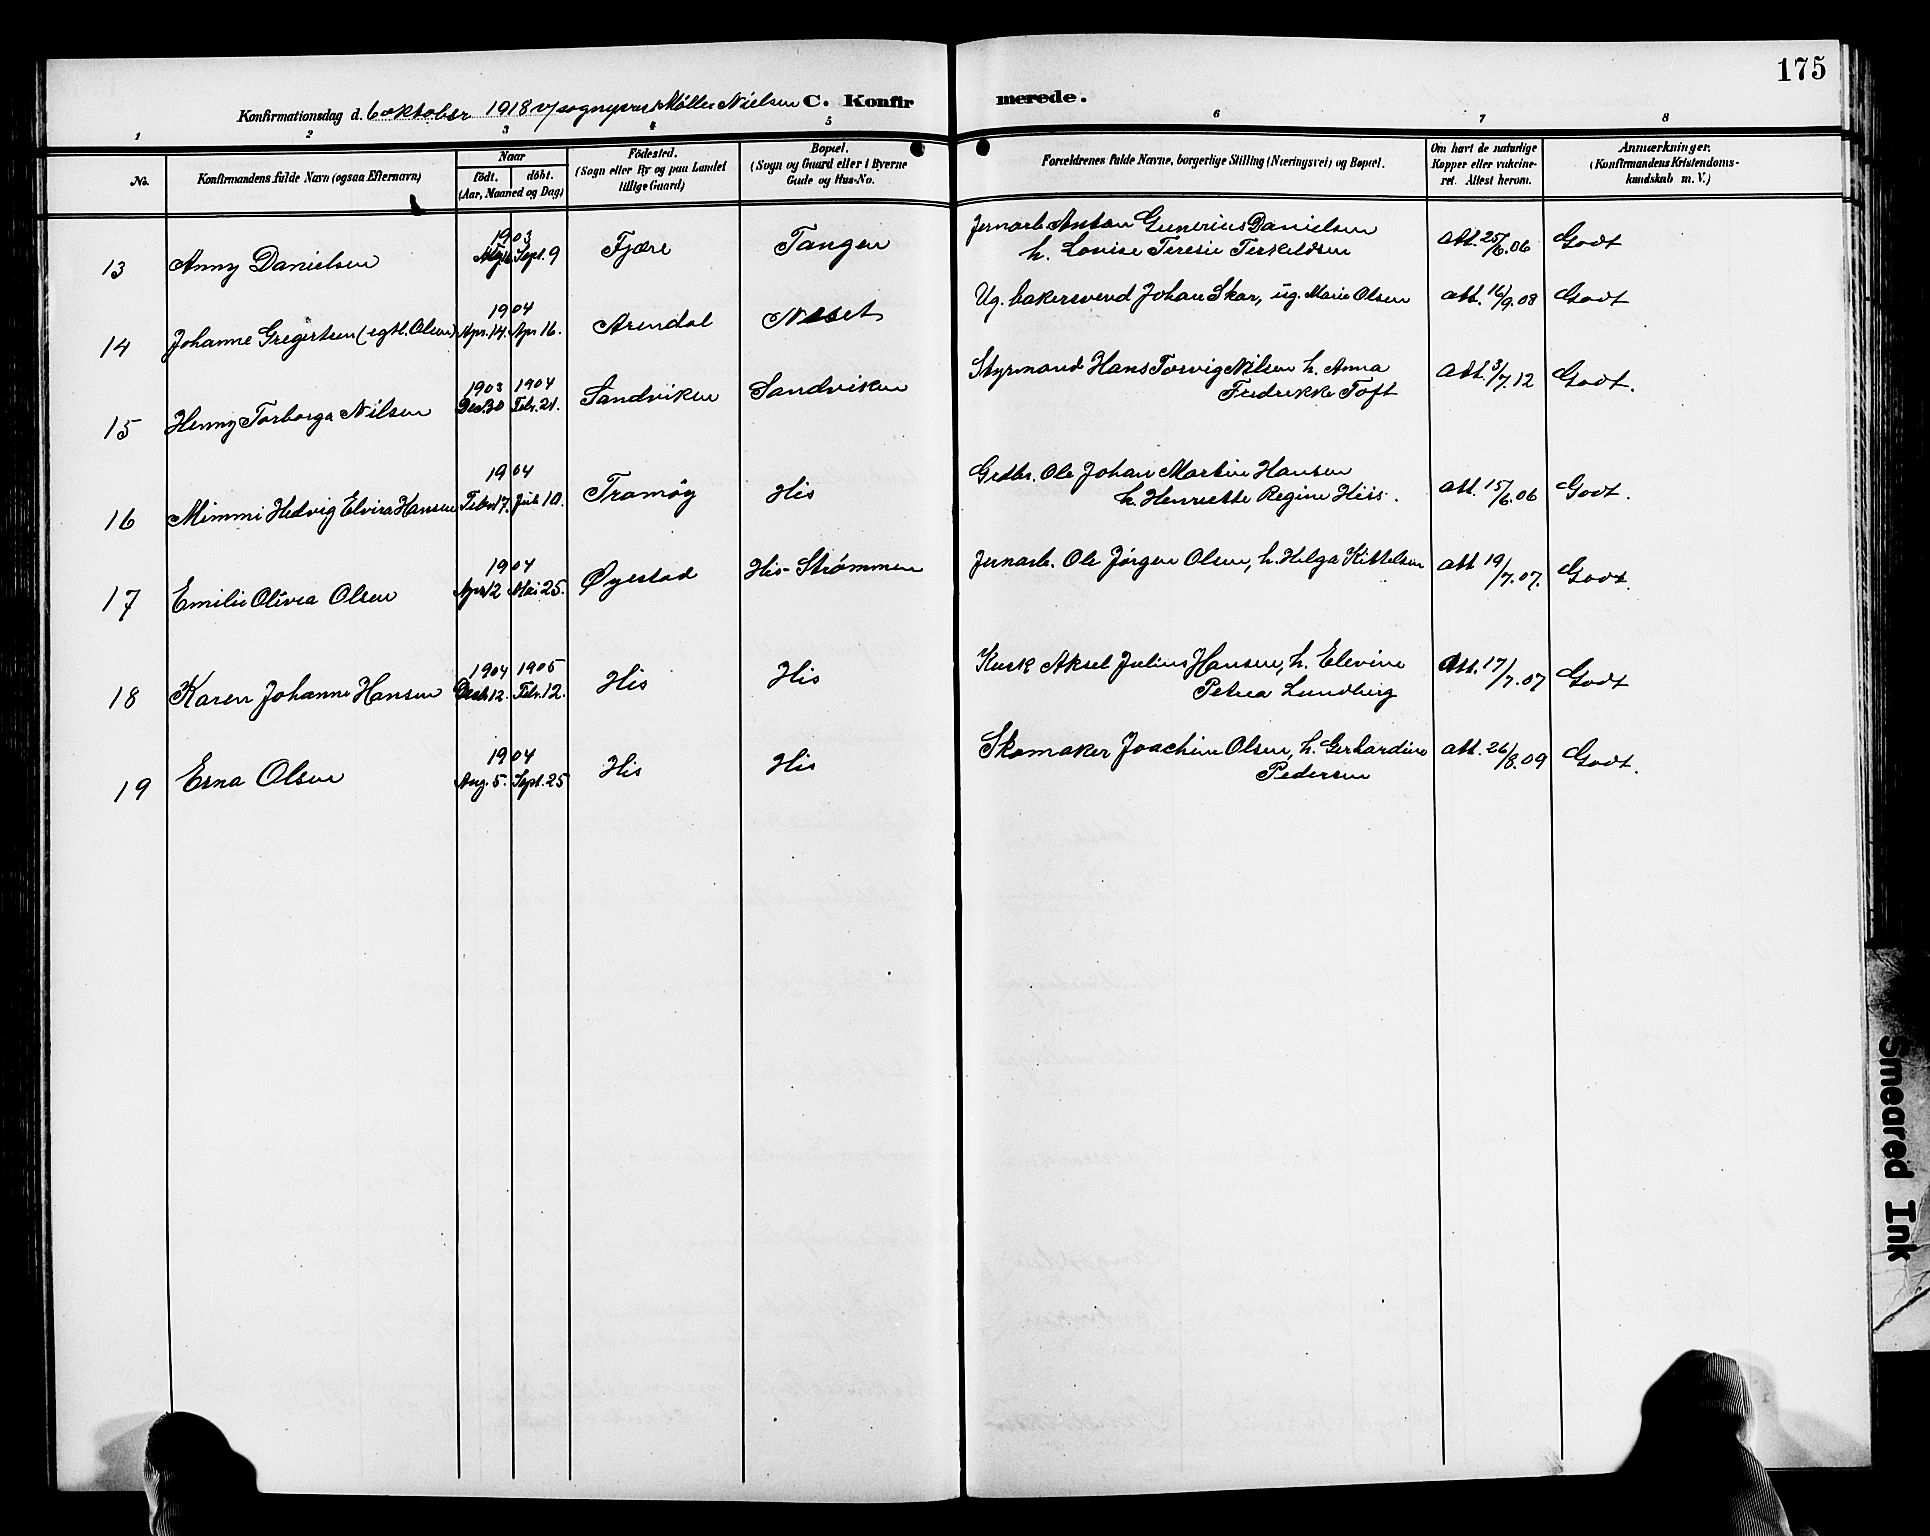 175
Konfirmationsdag d. 6 oktober 1918 v/ sogneprest Møller Nielsen C. Konfirmerede.
1 2 3 4 5 6 7 8
No.
Konfirmandens fulde Navn (ogsaa Efternavn)
Naar
födt. döbt.
(Aar, Maaned og Dag)
Födested.
(Sogn eller By og paa Landet
tillige Gaard)
Bopæl.
(Sogn og Gaard eller i Byerne
Gade og Hus-No.
Forældrenes fulde Navne, borgerlige Stilling (Næringsvei) og Bopæl.
Om havt de naturlige
Kopper eller vakcine-
ret. Attest herom.
Anmærkninger.
(Konfirmandens Kristendoms-
kundskab m. V.)
1903
13 Anny Danielsen Sept. 9 Fjære Tangen Jernarb. Anton Gunerius Danielsen
h. Louise Teresie Terkeldsen att. 25/6.06 Godt
1904
14 Johanne Gregertsen (egtl. Olsen) Apr. 14. Apr 16. Arendal Neset Ug. bakersvend Johan Skar, ug. Marie Olsen att. 16/9.08 Godt
1903 1904
15 Henny Torborga Nilsen Des. 30 Febr. 21. Sandviken Sandviken Styrmand Hans Torvig Nilsen h. Anna
Fredrikke Toft att. 3/7.12 Godt.
1904
16 Mimmi Hedvig Elvira Hansen Febr 17. Juli 10. Tromøy His Grdbr. Ole Johan Martin Hansen
h. Henriette Regine Hiis. att. 15/6.06 Godt.
1904
17 Emilie Olivia Olsen Apr 12 Mai 25. Øyestad His-Strømmen Jernarb. Ole Jørgen Olsen, h. Helga Kittelsen att 19/7.07. Godt.
1904 1905
18 Karen Johanne Hansen Desb. 12. Febr. 12. His His Kusk Aksel Julius Hansen, h. Elevine
Petrea Lundberg att. 17/7.07 Godt
1904
19 Erna Olsen Aug. 5. Sept. 25 His His Skomaker Joachim Olsen, h. Gerhardine
Pedersen att. 26/8.09 Godt.
Smeared Ink